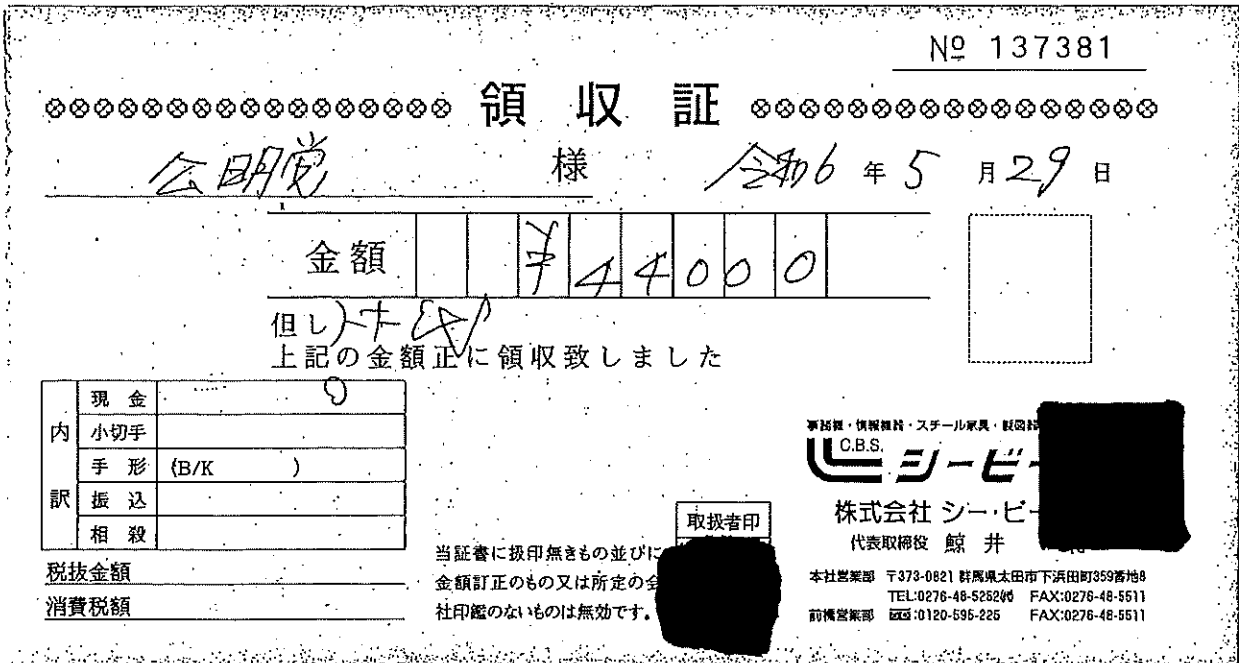 № 137381
領収証
公明党 様 令和6年5月29日
金額 ¥44000
但し トナー代
上記の金額正に領収致しました
内訳
現金
小切手
手形 (B/K )
振込
相殺
税抜金額
消費税額
当証書に扱印無きもの並びに
金額訂正のもの又は所定の会
社印鑑のないものは無効です。
取扱者印
事務機・情報機器・スチール家具・製図
C.B.S.
シービー
株式会社 シー・ビー
代表取締役 鯨井
本社営業部 〒373-0821 群馬県太田市下浜田町359番地8
TEL:0276-48-5252㈹ FAX:0276-48-5511
前橋営業部 :0120-595-225 FAX:0276-48-5511